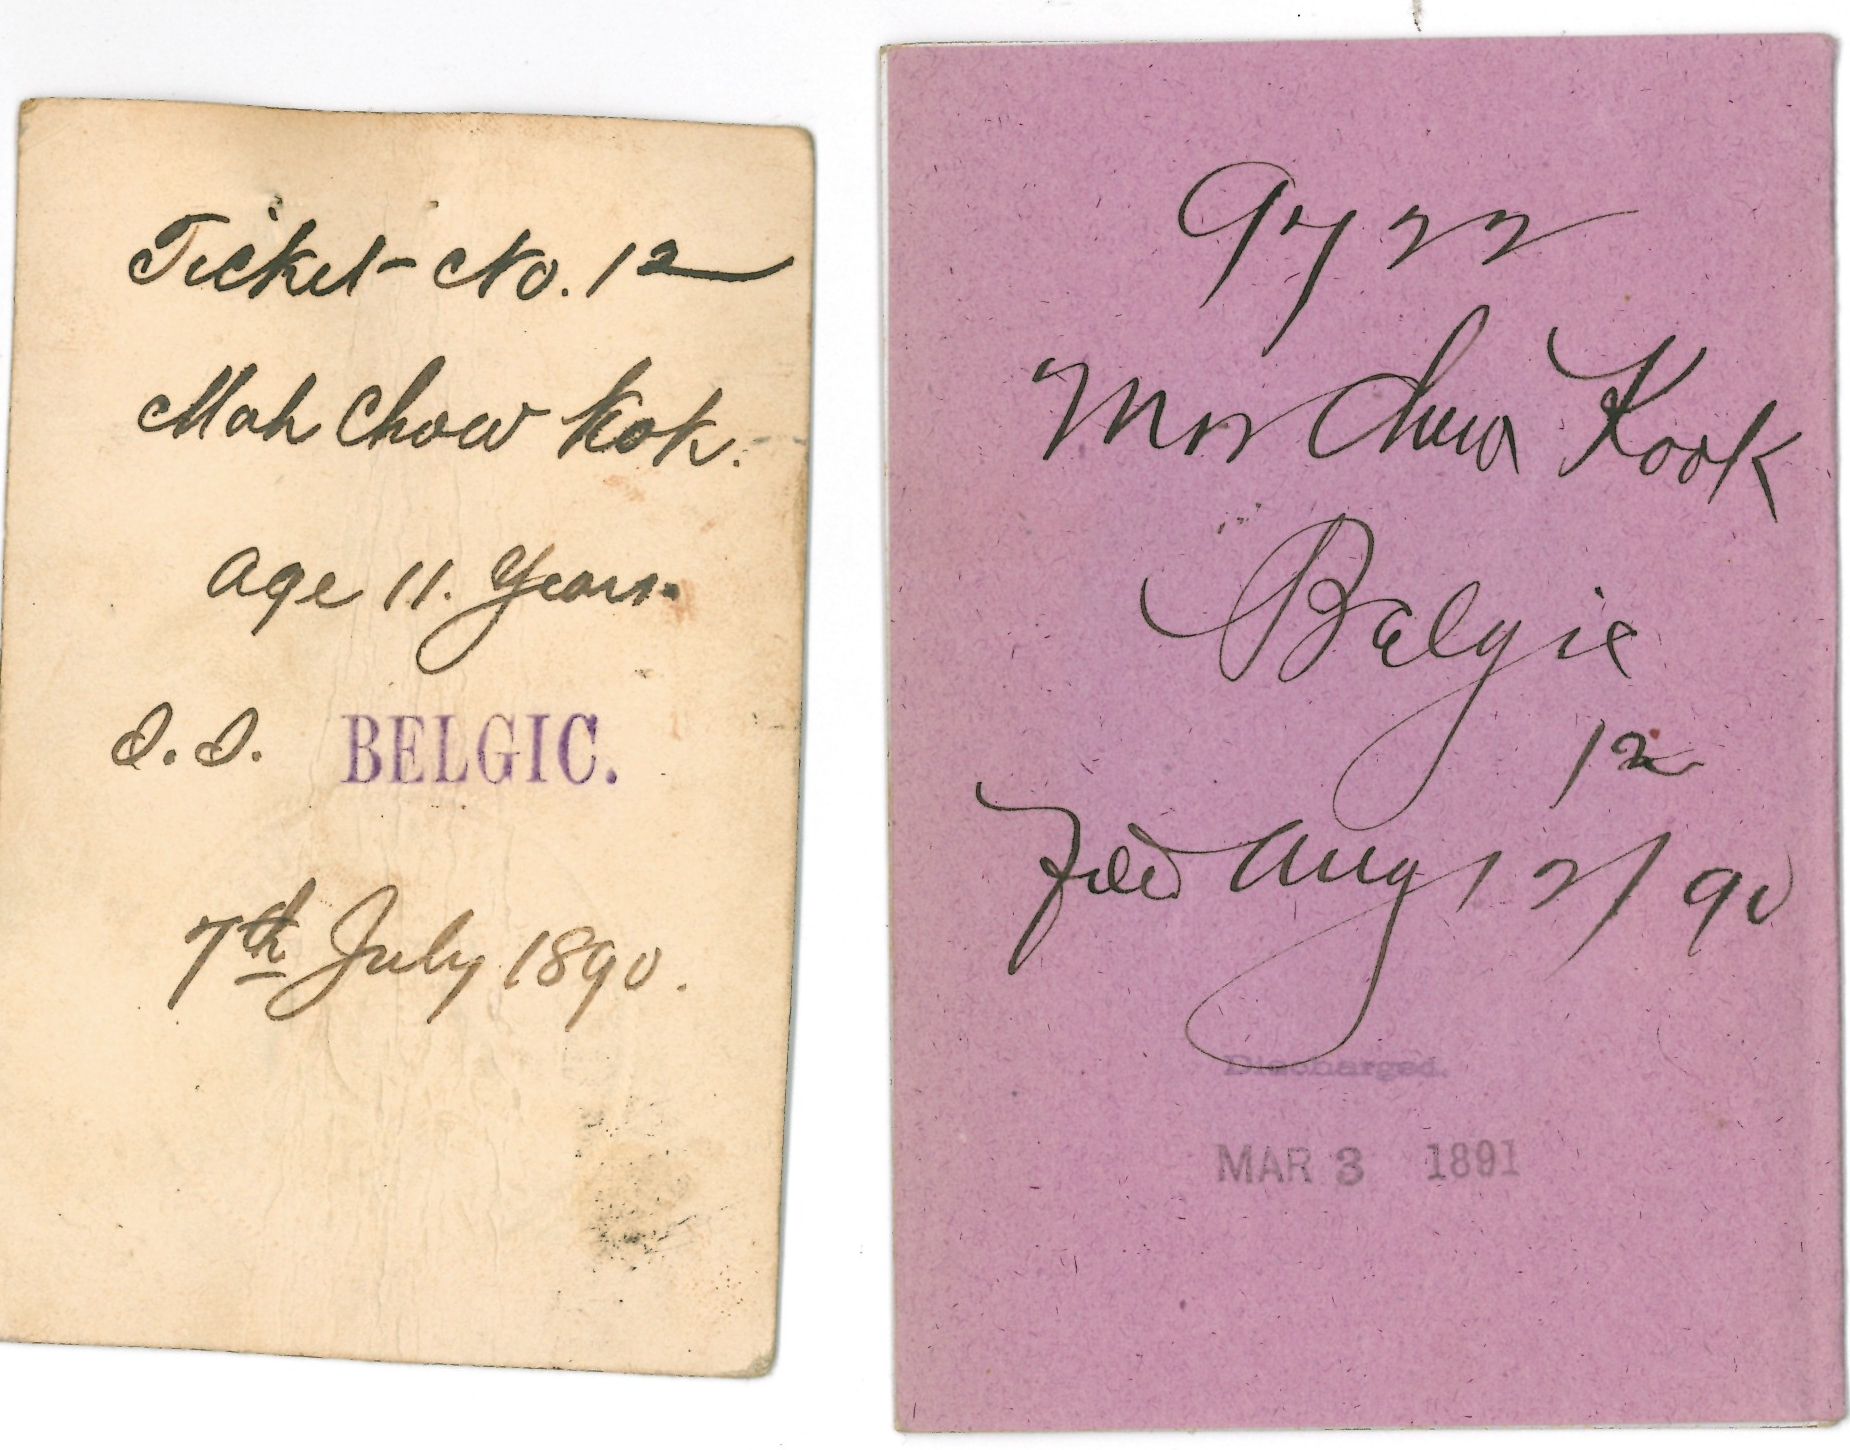 Ticket No. 12
Mah Chow Kok.
age 11. Years.
S.S. BELGIC.
7th July 1890.
9722
Mor Chow Kook
Belgic
12
Filed Aug 12/90
Discharged.
MAR 3 1891